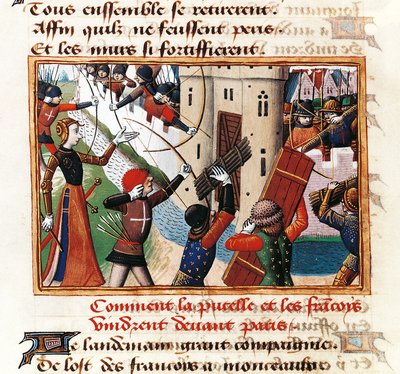 Tous enssemble se retirerent.
Affin quilz ne feussent peris
Et les murs si fortiffierent.
Comment la pucelle et les francois
Vindrent devant paris
Le landemain grant compaignie.
De lost des francois a